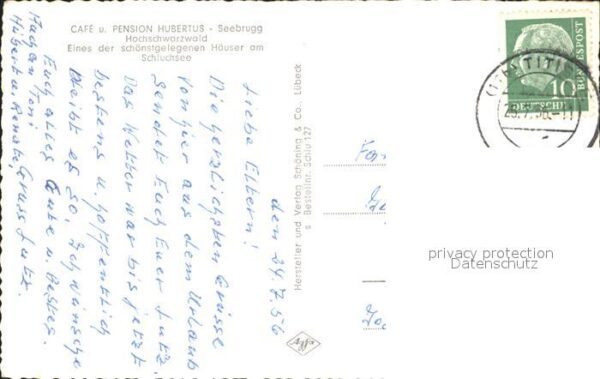 CAFÉ u. PENSION HUBERTUS - Seebrugg
Hochschwarzwald
Eines der schönstgelegenen Häuser am
Schluchsee
den 24.7.56
Liebe Eltern!
Die herzlichsten Grüsse
von hier aus dem Urlaub
sendet Euch Euer Lutz.
Das Wetter war bis jetzt
bestens u. hoffentlich
bleibt es so. Ich wünsche
Euch alles Gute u.
Hubert u. Renate, Gruss Lutz.
Hersteller und Verlag Schöning & Co., Lübeck
Bestellnr. Schlu 127
Agfa
10
DEUTSCHE
BUNDESPOST
TITI
privacy protection
Datenschutz